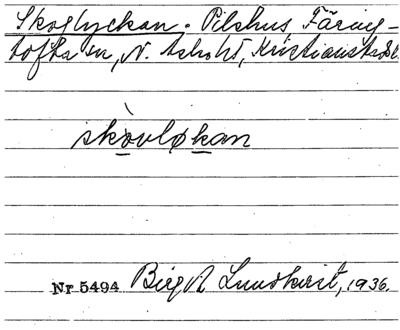 Skoglyckan. Pilshus, Färing-
tofta sn, N. Åsbohd, Kristianstads l.
skòvløkan
Nr 5494 Birgit Lundkvist, 1936.